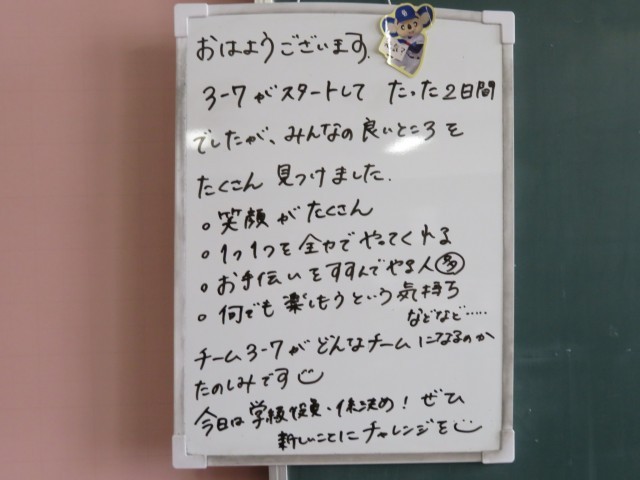 おはようございます.
3-7がスタートして たった2日間
でしたが、みんなの良いところを
たくさん 見つけました.
○笑顔がたくさん
○1つ1つを全力でやってくれる
○お手伝いをすすんでやる人 多
○何でも楽しもうという気持ち
などなど.....
チーム3-7がどんなチームになるのか
たのしみです
今日は学級役員・係決め! ぜひ
新しいことにチャレンジを